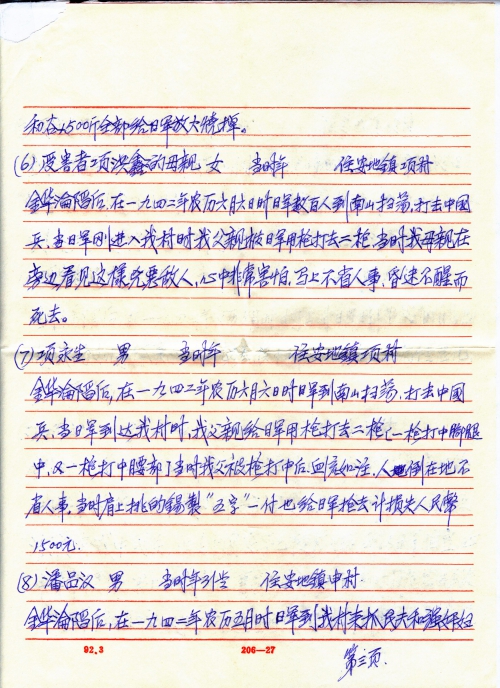 和谷1500斤全部给日军放火烧掉。
(6) 受害者项洪鑫的母亲 女 当时年 住安地镇项村
金华沦陷后,在一九四二年农历六月六日时日军数百人到南山扫荡,打击中國
兵,当日军刚进入我村时我父親被日军用枪打去二枪,当时我母親在
旁边看见这樣兇惡敌人,心中非常害怕,马上不省人事,昏迷不醒而
死去。
(7) 项永生 男 当时年 住安地镇项村
金华淪陷后,在一九四二年农历六月六日时日军到南山扫荡,打击中國
兵,当日军到达我村时,我父親给日军用枪打去二枪(一枪打中脚腿
中,又一枪打中腰部)当时我父被枪打中后,血流如注,人倒在地不
省人事,当时肩上挑的錫製“五字”一付也给日军抢去计损失人民幣
1500元.
(8) 潘品汉 男 当时年31岁 住安地镇中村.
金华淪陷后,在一九四二年农历五月时日军到我村来抓民夫和强奸妇
92.3 206—27
第三页.